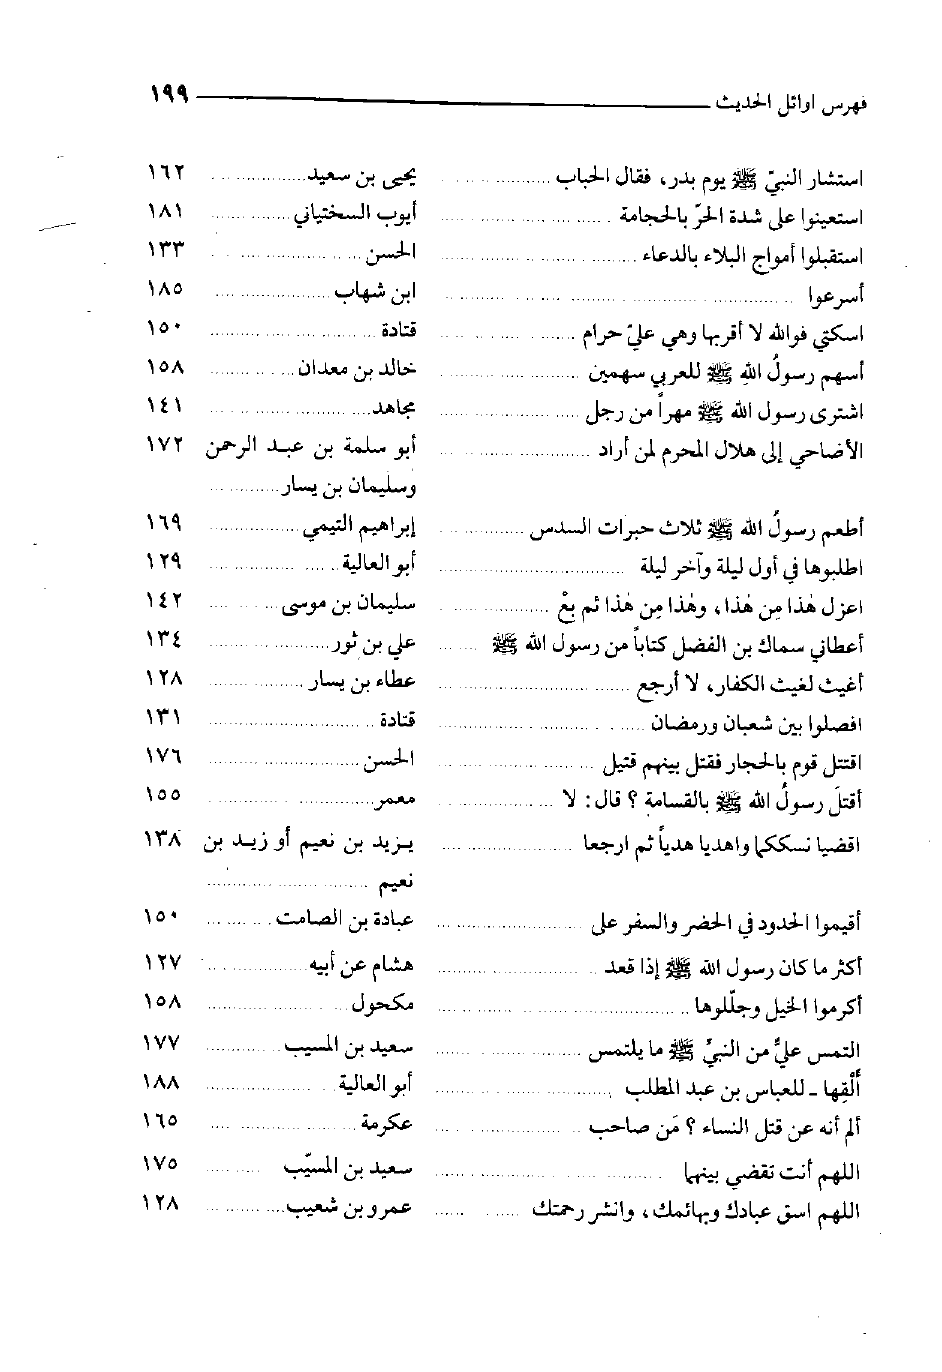 فهرس اوائل الحديث ١٩٩
استشار النبيّ ﷺ يوم بدر، فقال الحباب يحيى بن سعيد ١٦٢
استعينوا على شدة الحرّ بالحجامة أيوب السختياني ١٨١
استقبلوا أمواج البلاء بالدعاء الحسن ١٣٣
أسرعوا ابن شهاب ١٨٥
اسكتي فوالله لا أقربها وهي عليّ حرام قتادة ١٥٠
أسهم رسولُ اللهِ ﷺ للعربي سهمين خالد بن معدان ١٥٨
اشترى رسول الله ﷺ مهراً من رجل مجاهد ١٤١
الأضاحي إلى هلال المحرم لمن أراد أبو سلمة بن عبد الرحمن ١٧٢
وسليمان بن يسار
أطعم رسولُ الله ﷺ ثلاث حبرات السدس إبراهيم التيمي ١٦٩
اطلبوها في أول ليلة وآخر ليلة أبو العالية ١٢٩
اعزل هٰذا مِن هٰذا، وهٰذا مِن هٰذا ثم بِعْ سليمان بن موسى ١٤٢
أعطاني سماك بن الفضل كتاباً من رسول الله ﷺ علي بن ثور ١٣٤
أغيث لغيث الكفار، لا أرجع عطاء بن يسار ١٢٨
افصلوا بين شعبان ورمضان قتادة ١٣١
اقتتل قوم بالحجار فقتل بينهم قتيل الحسن ١٧٦
أقتلَ رسولُ الله ﷺ بالقسامة ؟ قال: لا معمر ١٥٥
اقضيا نسككما واهديا هدياً ثم ارجعا يزيد بن نعيم أو زيد بن ١٣٨
نعيم
أقيموا الحدود في الحضر والسفر على عبادة بن الصامت ١٥٠
أكثر ما كان رسول الله ﷺ إذا قعد هشام عن أبيه ١٢٧
أكرموا الخيل وجلّلوها مكحول ١٥٨
التمس عليٌّ من النبيِّ ﷺ ما يلتمس سعيد بن المسيب ١٧٧
أَلْقِها - للعباس بن عبد المطلب أبو العالية ١٨٨
ألم أنه عن قتل النساء ؟ مَن صاحب عكرمة ١٦٥
اللهم أنت تقضي بينهما سعيد بن المسيّب ١٧٥
اللهم اسق عبادك وبهائمك، وانشر رحمتك عمرو بن شعيب ١٢٨